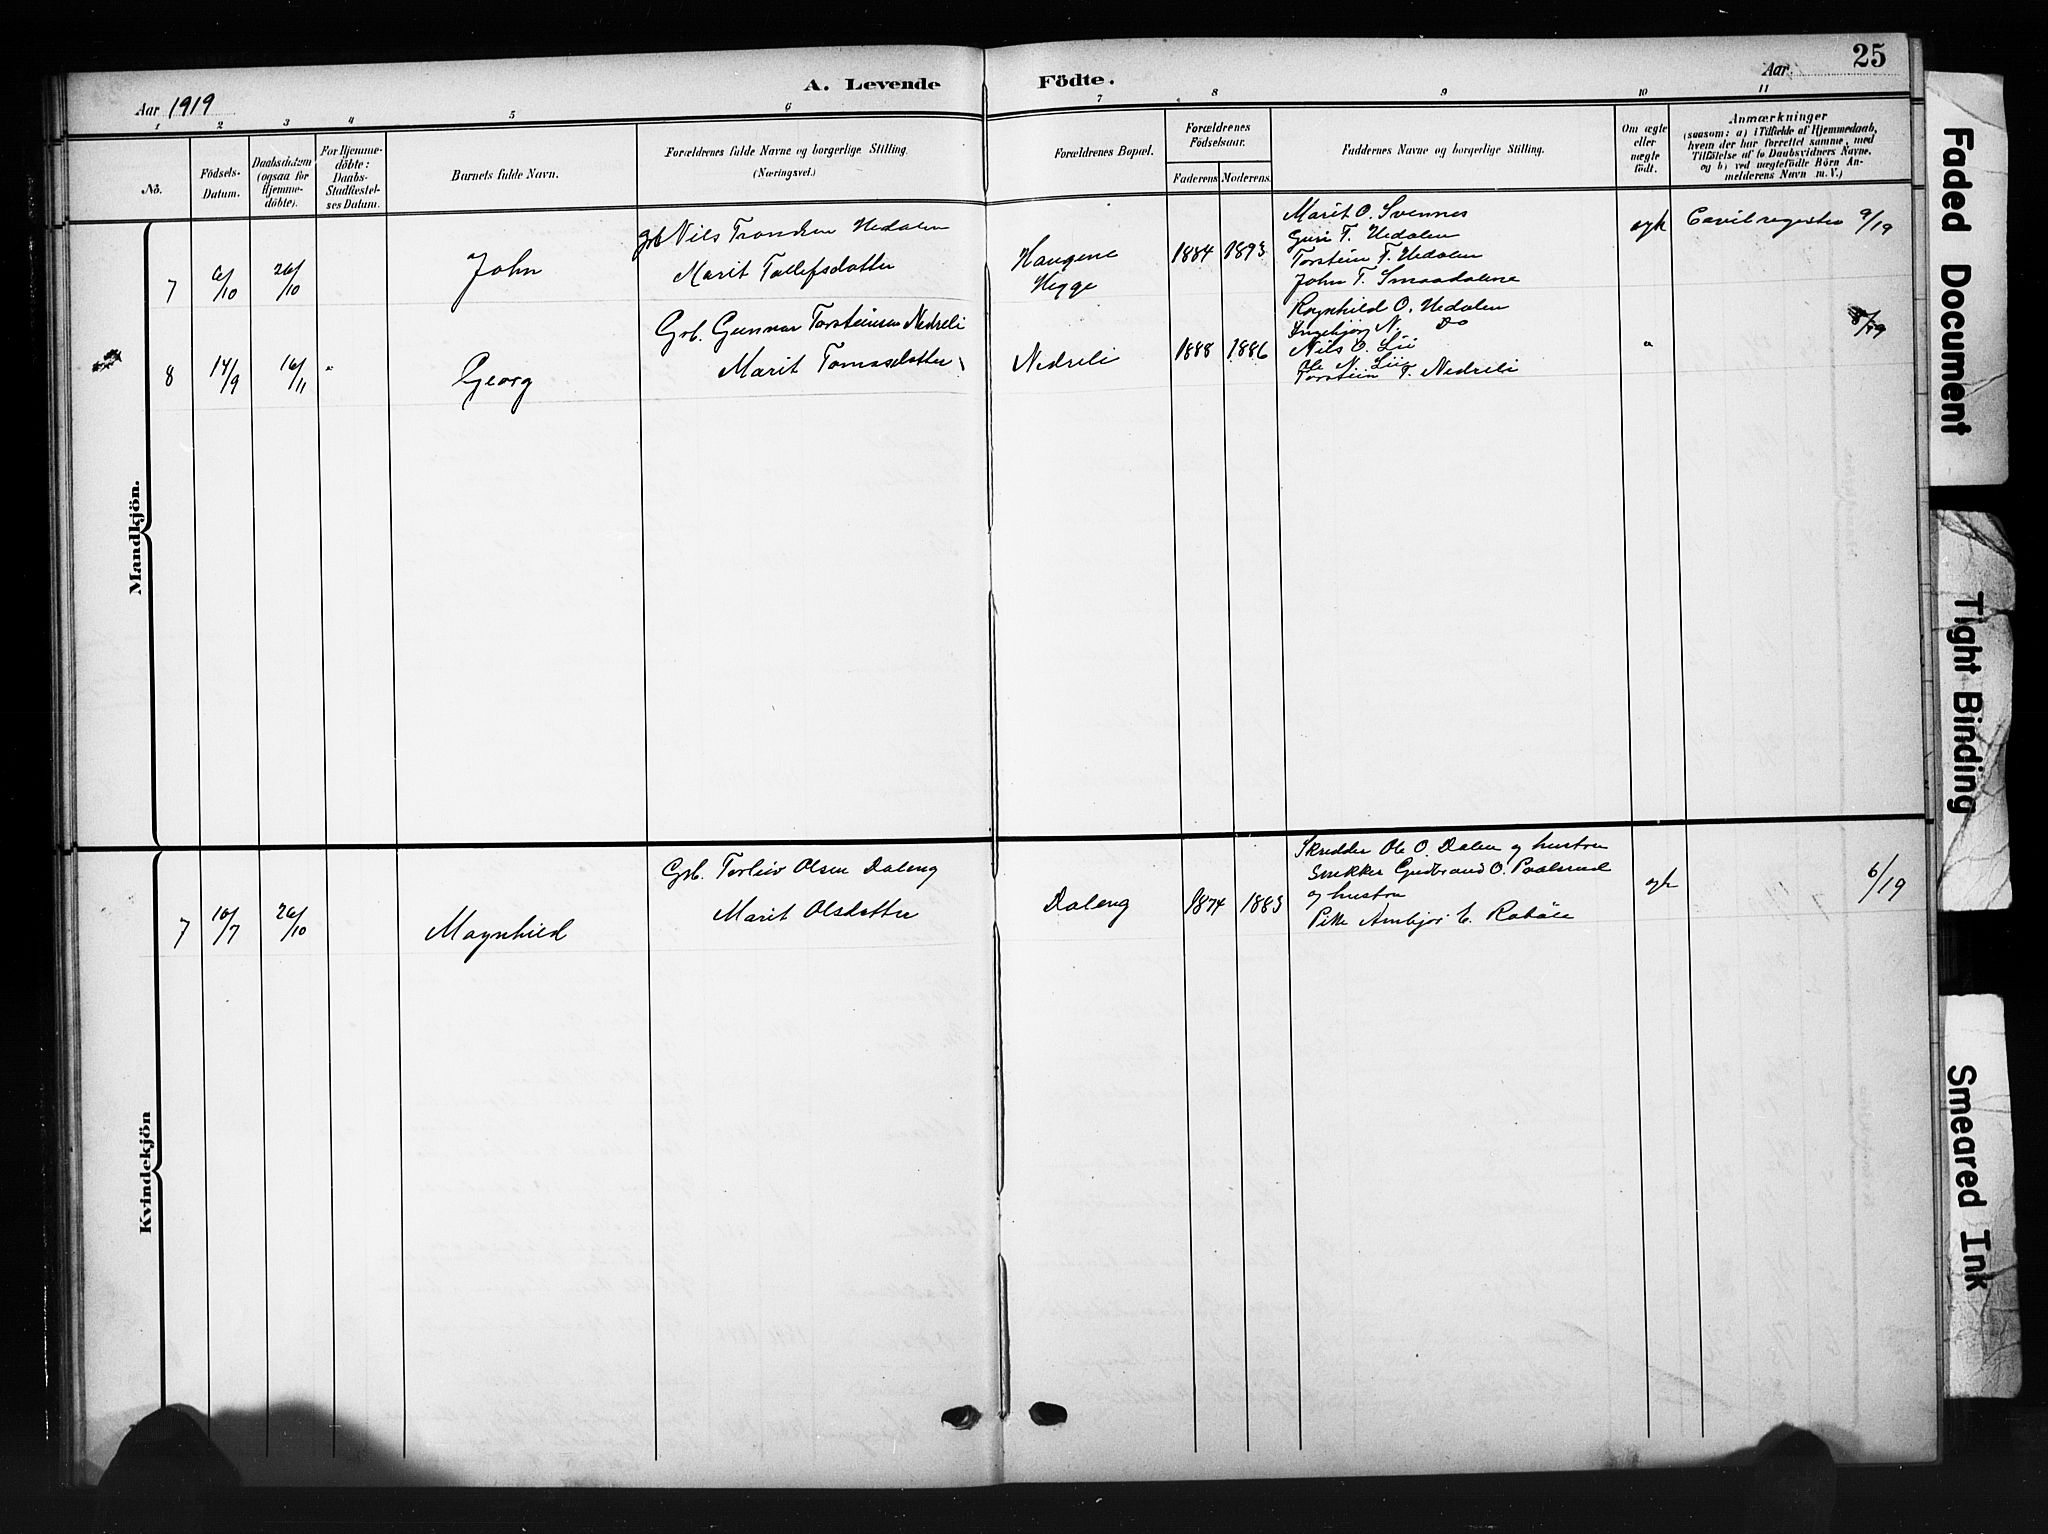 25
A. Levende Födte.
Aar 1919
Aar
1 2 3 4 5 6 7 8 9 10 11
No.
Födsels-
Datum.
Daabsdatum
(ogsaa for
Hjemme-
döbte).
For Hjemme-
döbte:
Daabs-
Stadfæstel-
ses Datum.
Barnets fulde Navn.
Forældrenes fulde Navne og borgerlige Stilling.
(Næringsvei.)
Forældrenes Bopæl.
Forældrenes
Födselsaar.
Faderens Moderens.
Faddernes Navne og borgerlige Stilling.
Om ægte
eller
uægte
født.
Anmærkninger
(saasom: a) i Tilfælde af Hjemmedaab,
hvem der har forrettet samme, med
Tilføielse af to Daabsvidners Navne,
og b) ved uægtefödte Börn An-
melderens Navn m. V.)
Mandkjön.
7 6/10 26/10 John
Grb Nils Trondsen Hedalen
Marit Tollefsdatter
Haugene
Hegge
1884 1893
Marit O. Svennes
Guri T. Hedalen
Torstein T. Hedalen
John T. Smaadalene
egte
9/19
8 14/9 16/11 " Georg
Grb. Gunnar Torsteinsen Nedreli
Marit Tomasdatter
Nedreli
1888 1886
Ragnhild O. Hedalen
Ingebjørg N. Do
Nils O. Lii
Ole N. Lii
Torstein T. Nedreli
"
8/19
Kvindekjön
7 10/7 26/10 Magnhild
Grb. Torleiv Olsen Daleng
Marit Olsdatter
Daleng
1874 1883
Skredder Ole O. Dalen og hustru
Snekker Gudbrand O. Paalsrud
og hustru
Pike Ambjør E. Robøle
egte
6/19
Faded Document
Tight Binding
Smeared Ink